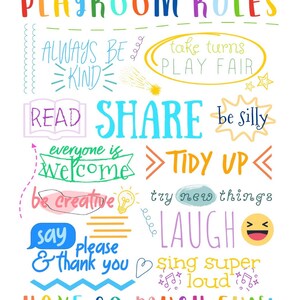 PLAYROOM RULES
ALWAYS BE
KIND
take turns
PLAY FAIR
READ
SHARE
be silly
everyone is
welcome
TIDY UP
be creative
try new things
say
please
& thank you
LAUGH
sing super
loud
HAVE SO MUCH FUN!